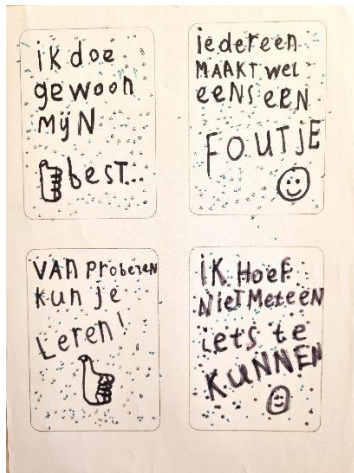 iK doe
gewoon
MijN
best...
iedereen
MAAKT wel
eens EEN
FOUTJE
VAN proberen
Kun je
Leren!
iK Hoef
Niet Meteen
iets te
KUNNEN